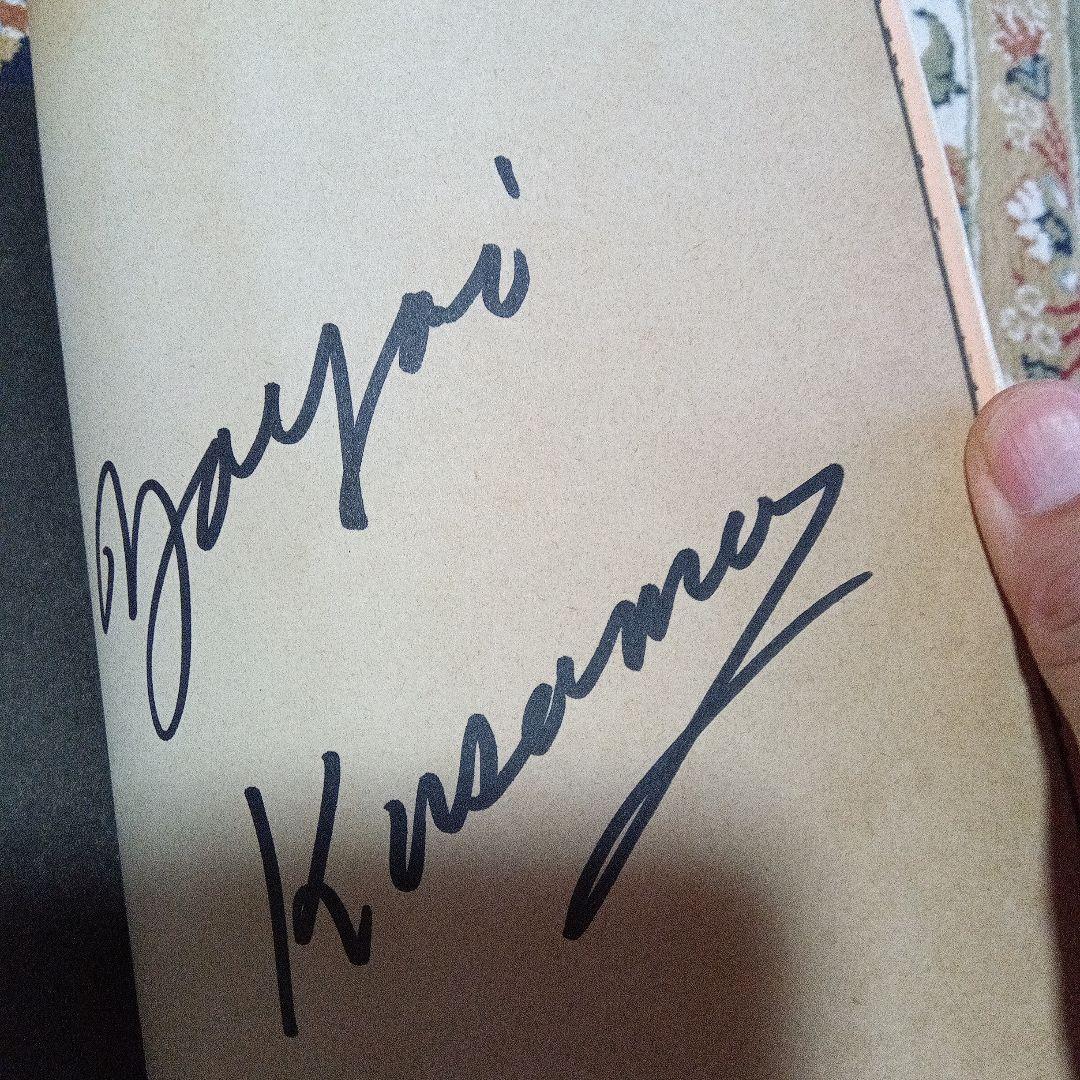 Yayoi
Kusama